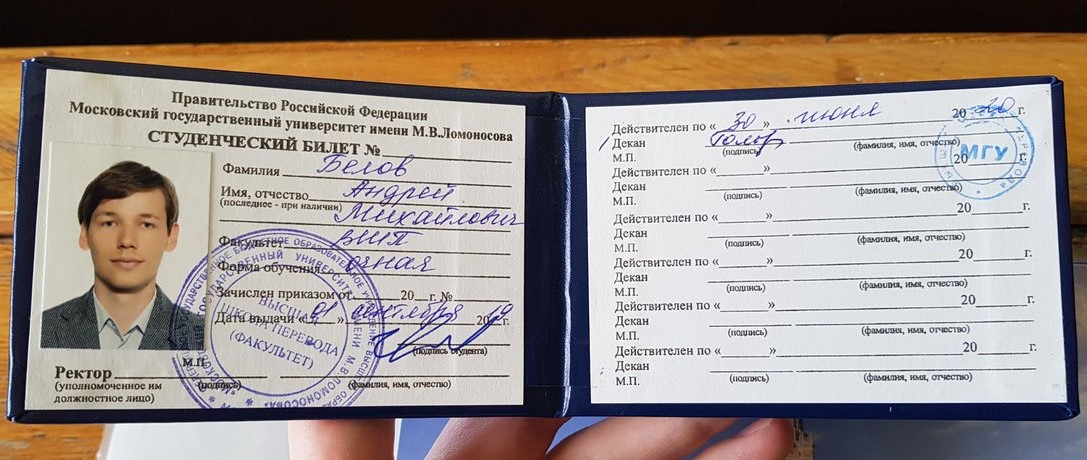 Правительство Российской Федерации
Московский государственный университет имени М.В.Ломоносова
СТУДЕНЧЕСКИЙ БИЛЕТ №
Фамилия Белов
Имя, отчество Андрей
(последнее - при наличии) Михайлович
Факультет ВШП
Форма обучения очная
Зачислен приказом от 20 г. №
Дата выдачи « 01 » сентября 2019 г.
(подпись студента)
М.П.
Ректор
(уполномоченное им должностное лицо)
(подпись)
(фамилия, имя, отчество)
ВЫСШАЯ
ШКОЛА ПЕРЕВОДА
(ФАКУЛЬТЕТ)
Действителен по « 30 » июня 2020 г.
Декан
(подпись) (фамилия, имя, отчество)
М.П.
МГУ
Действителен по « » 20 г.
Декан
(подпись) (фамилия, имя, отчество)
М.П.
Действителен по « » 20 г.
Декан
(подпись) (фамилия, имя, отчество)
М.П.
Действителен по « » 20 г.
Декан
(подпись) (фамилия, имя, отчество)
М.П.
Действителен по « » 20 г.
Декан
(подпись) (фамилия, имя, отчество)
М.П.
Действителен по « » 20 г.
Декан
(подпись) (фамилия, имя, отчество)
М.П.